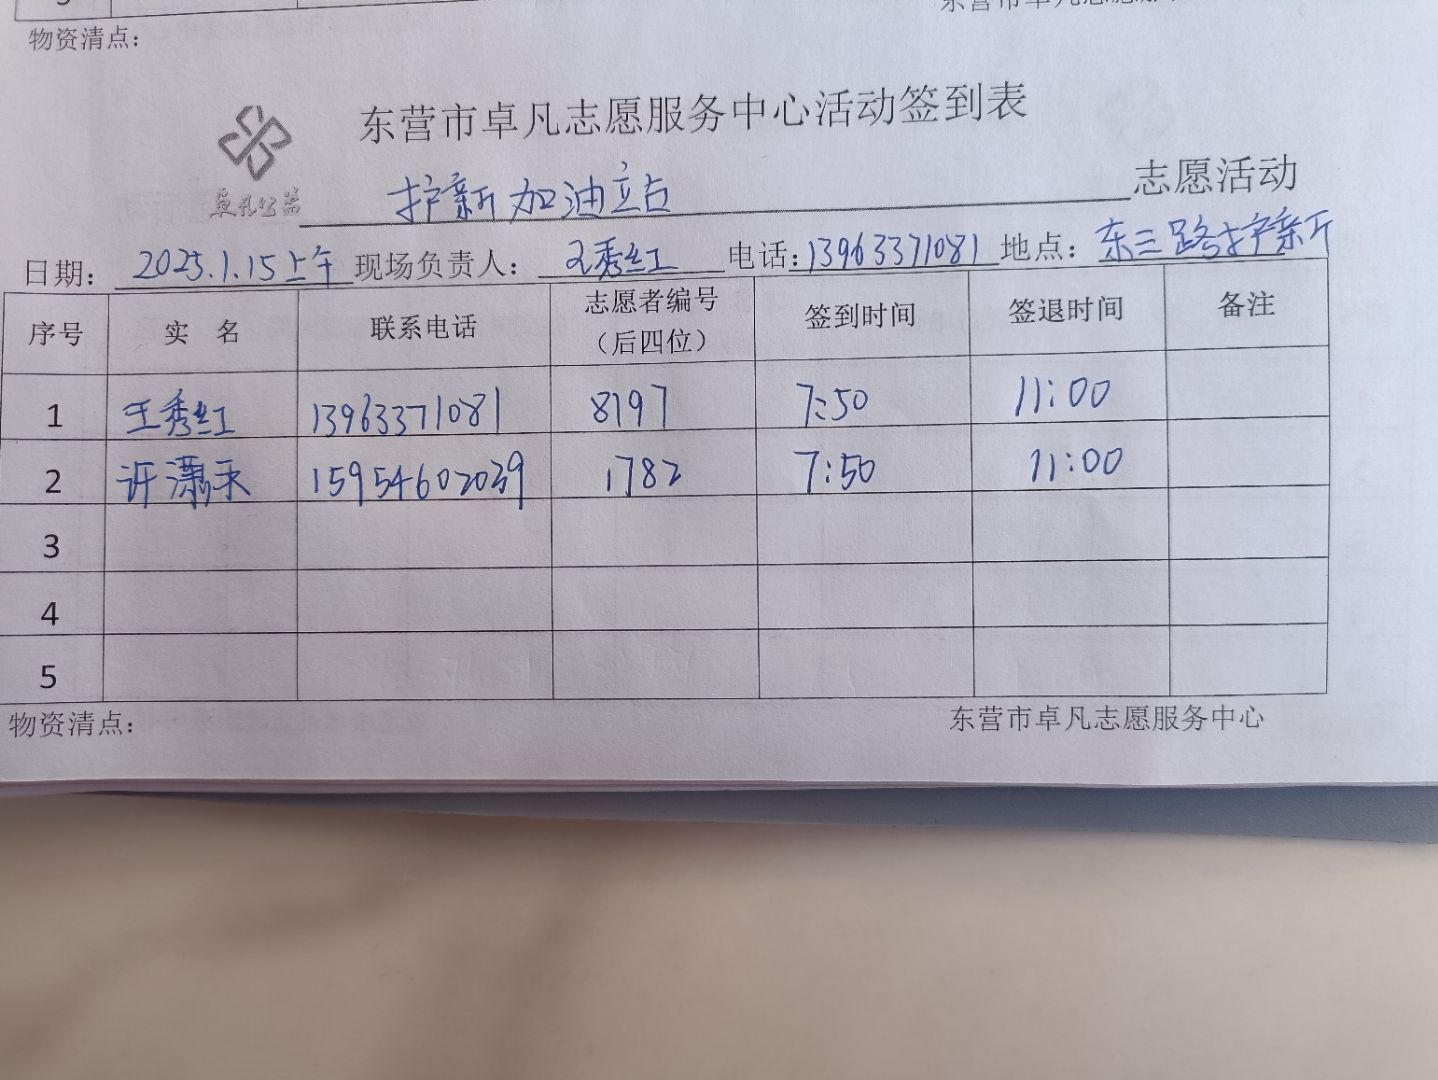 物资清点：
东营市卓凡志愿服务中心活动签到表
卓凡公益
护薪加油站 志愿活动
日期：2025.1.15上午 现场负责人：王秀红 电话：13963371081 地点：东三路护薪厅
序号 实 名 联系电话 志愿者编号（后四位） 签到时间 签退时间 备注
1 王秀红 13963371081 8197 7:50 11:00
2 许潇禾 15954602039 1782 7:50 11:00
3
4
5
物资清点： 东营市卓凡志愿服务中心